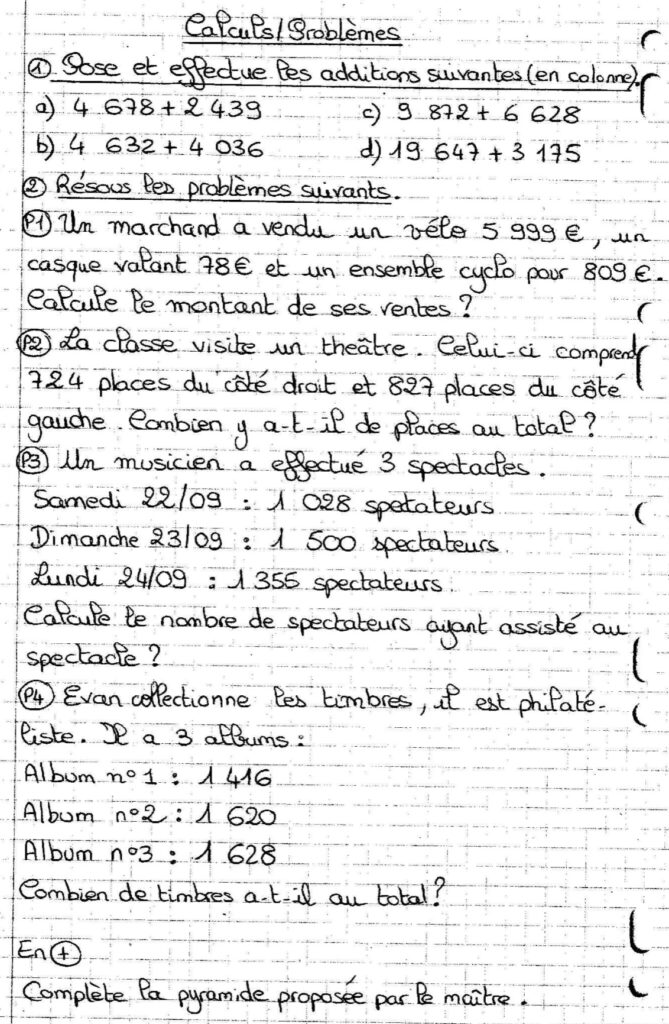 Calculs/Problèmes
① Pose et effectue les additions suivantes (en colonne).
a) 4 678 + 2 439 c) 9 872 + 6 628
b) 4 632 + 4 036 d) 19 647 + 3 175
② Résous les problèmes suivants.
P1 Un marchand a vendu un vélo 5 999 €, un
casque valant 78 € et un ensemble cyclo pour 809 €.
Calcule le montant de ses ventes ?
P2 La classe visite un theâtre. Celui-ci comprend
724 places du côté droit et 827 places du côté
gauche. Combien y a-t-il de places au total ?
P3 Un musicien a effectué 3 spectacles.
Samedi 22/09 : 1 028 spetateurs
Dimanche 23/09 : 1 500 spectateurs.
Lundi 24/09 : 1 355 spectateurs.
Calcule le nombre de spectateurs ayant assisté au
spectacle ?
P4 Evan collectionne les timbres, il est philaté-
liste. Il a 3 albums :
Album n°1 : 1 416
Album n°2 : 1 620
Album n°3 : 1 628
Combien de timbres a-t-il au total ?
En ⊕
Complète la pyramide proposée par le maître.